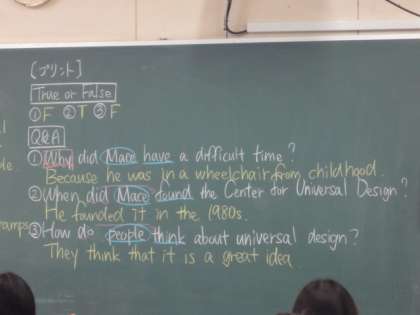 [プリント]
True or False
①F ②T ③F
Q&A
①Why did Mace have a difficult time?
Because he was in a wheelchair from childhood.
②When did Mace found the Center for Universal Design?
He founded It in the 1980s.
③How do people think about universal design?
They think that it is a great idea